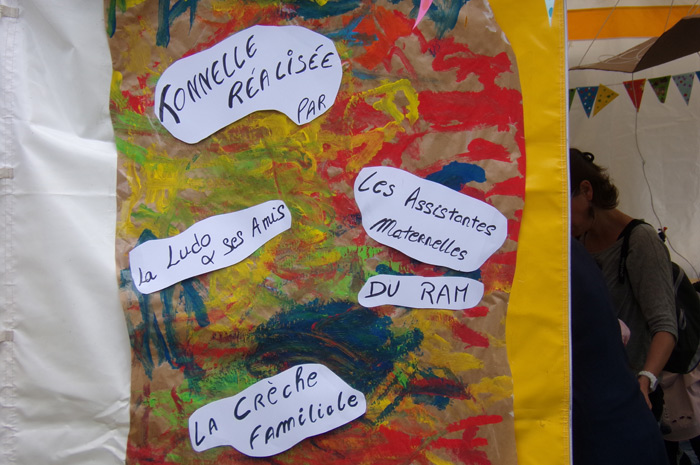 TONNELLE
RÉALISÉE
PAR
La Ludo
& ses Amis
Les Assistantes
Maternelles
DU RAM
LA CRÈCHE
FAMILIALE